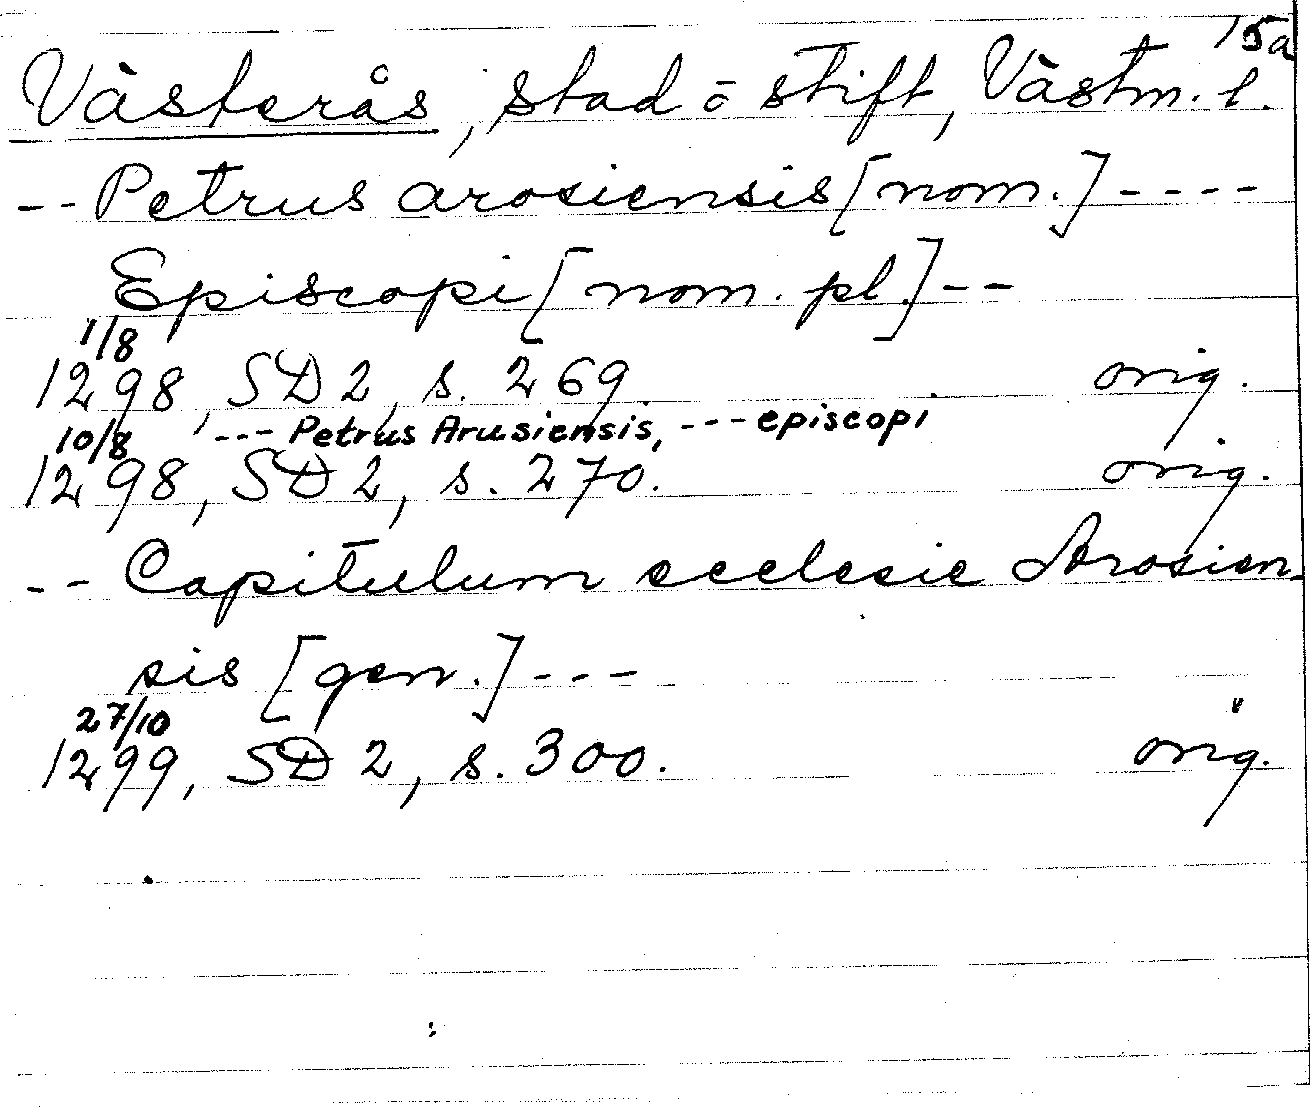 15a
Västerås, stad o stift, Västm. l.
-- Petrus arosiensis [nom.] ----
Episcopi [nom. pl.] --
1/8
1298, SD 2, s. 269. orig.
10/8 --- Petrus Arusiensis, --- episcopi
1298, SD 2, s. 270. orig.
-- Capitulum ecclesie Arosien-
sis [gen.] ---
27/10
1299, SD 2, s. 300. orig.